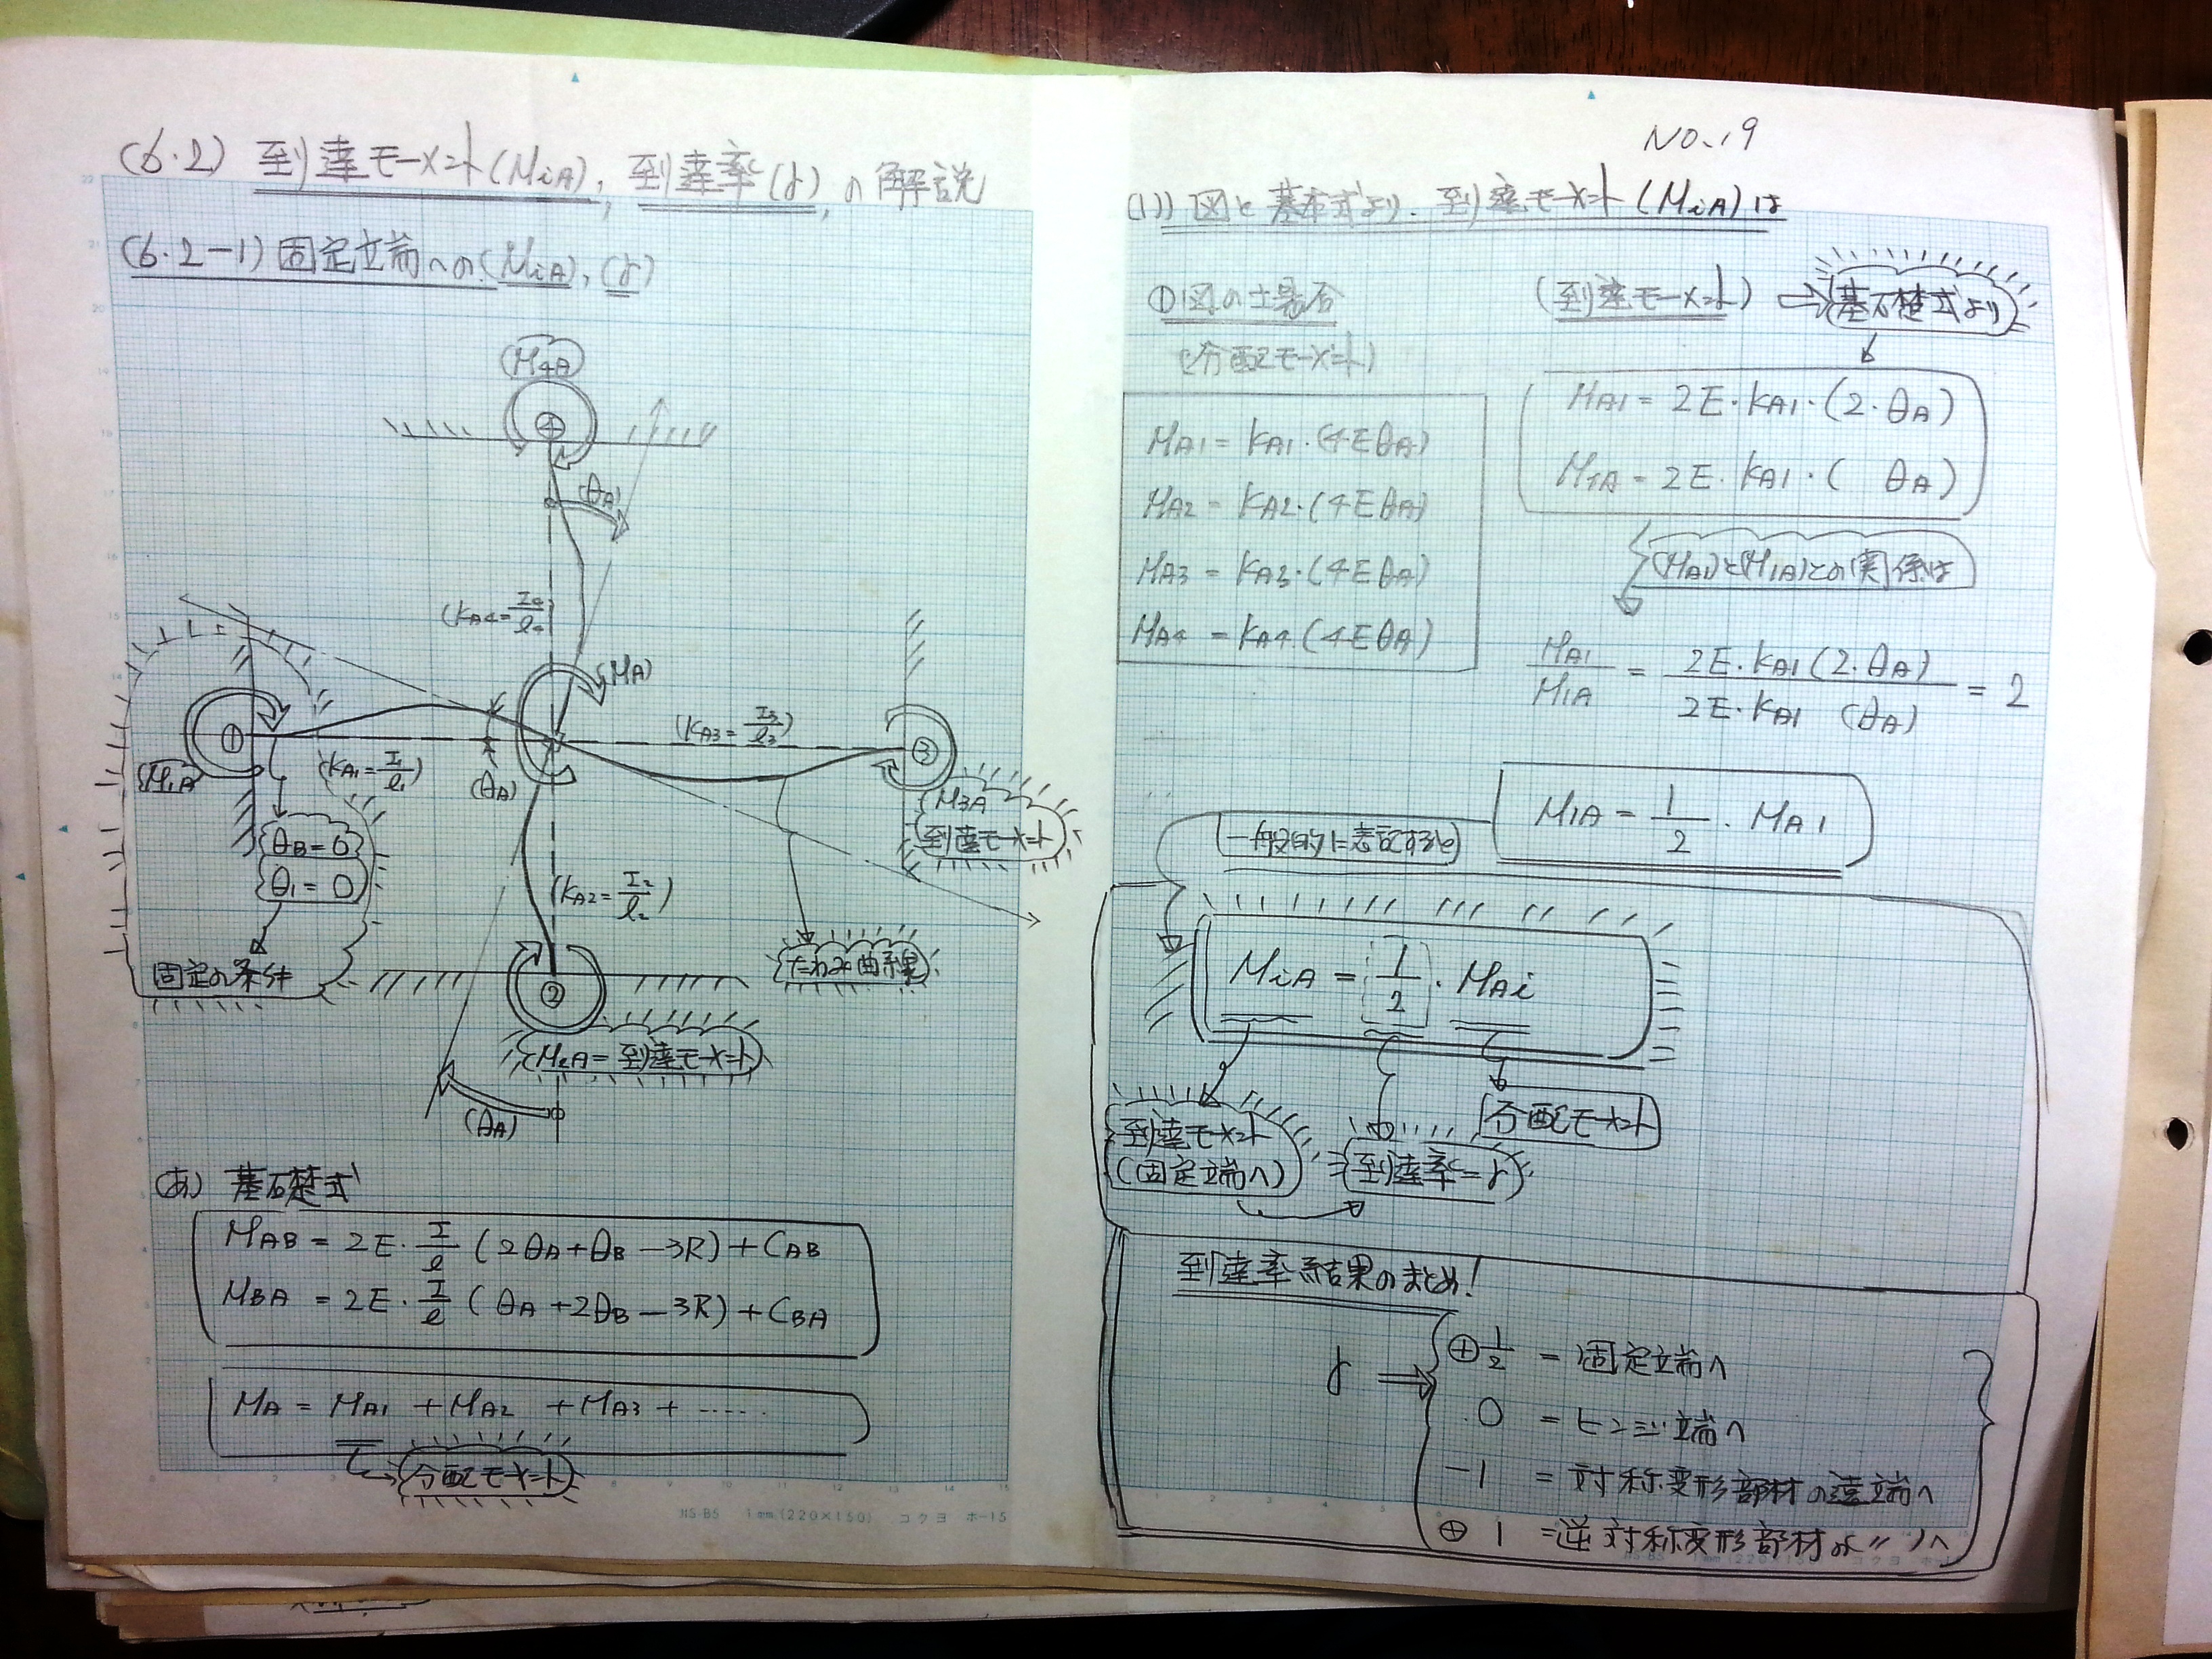 (6・2) 到達モーメント(MiA), 到達率(γ), の解説
(6・2-1) 固定端への(MiA), (γ)
(M4A)
④
(θA)
(KA4=I4/l4)
(MA)
①
(M1A)
(KA1=I1/l1)
(θA)
(KA3=I3/l3)
③
M3A
到達モーメント
θB=0
θ1=0
固定の条件
(KA2=I2/l2)
たわみ曲線
②
M2A=到達モーメント
(θA)
(あ) 基礎式
MAB = 2E・I/l (2θA+θB-3R)+CAB
MBA = 2E・I/l (θA+2θB-3R)+CBA
MA = MA1 +MA2 +MA3 + ‥‥
分配モーメント
JIS-B5 1mm(220×150) コクヨ ホ-15
NO.19
(1)) 図と基本式より、到達モーメント(MiA)は
①図の場合
(分配モーメント)
MA1 = KA1・(4EθA)
MA2 = KA2・(4EθA)
MA3 = KA3・(4EθA)
MA4 = KA4・(4EθA)
(到達モーメント) ⇒ 基礎式より
MA1 = 2E・KA1・(2・θA)
M1A = 2E・KA1・( θA)
(MA1)と(M1A)との関係は
MA1/M1A = 2E・KA1(2・θA)/2E・KA1 (θA) = 2
M1A = 1/2・MA1
一般的に表記すると
MiA = 1/2・MAi
到達モーメント
(固定端へ)
到達率=γ
分配モーメント
到達率結果のまとめ!
γ ⇒
⊕1/2 = 固定端へ
0 = ヒンジ端へ
-1 = 対称変形部材の遠端へ
⊕1 = 逆対称変形部材の〃 へ